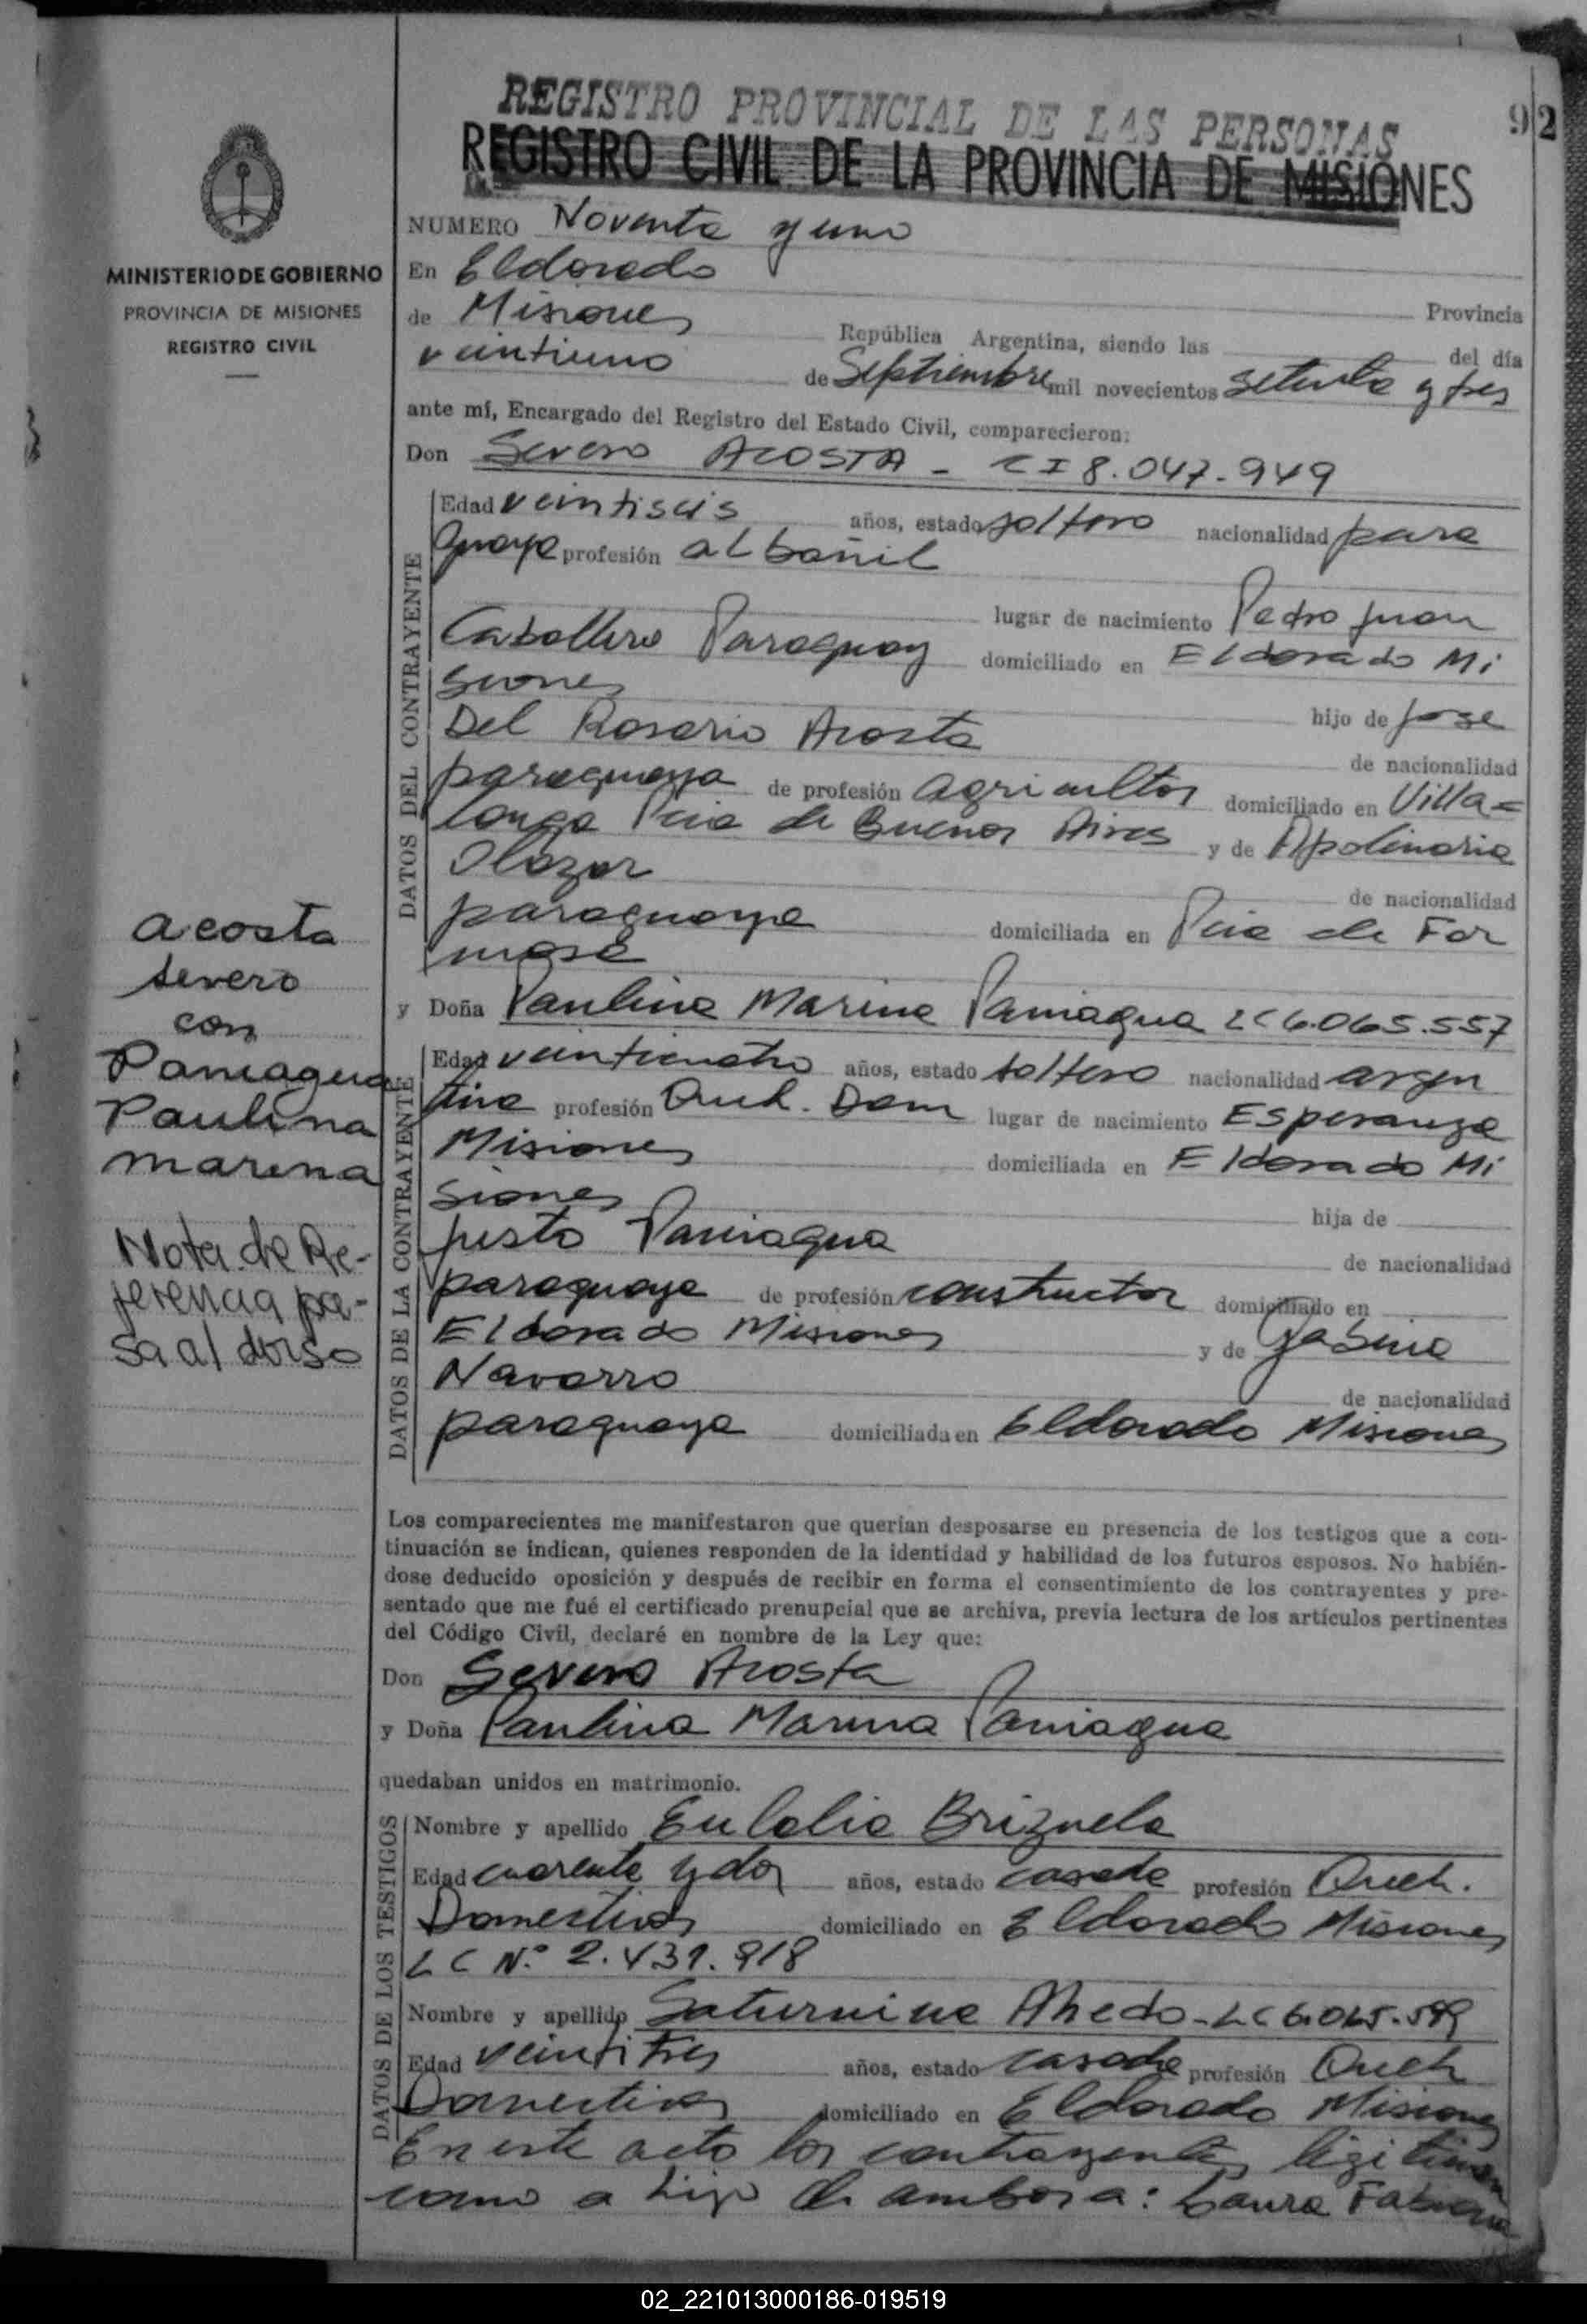 92
REGISTRO PROVINCIAL DE LAS PERSONAS
REGISTRO CIVIL DE LA PROVINCIA DE MISIONES
MINISTERIO DE GOBIERNO
PROVINCIA DE MISIONES
REGISTRO CIVIL
NUMERO Noventa y uno
En Eldorado Provincia
de Misiones República Argentina, siendo las del día
veintiuno de Septiembre mil novecientos setenta y tres
ante mí, Encargado del Registro del Estado Civil, comparecieron:
Don Severo ACOSTA - CI 8.047.949
DATOS DEL CONTRAYENTE
Edad veintiseis años, estado soltero nacionalidad para
guaya profesión albañil
lugar de nacimiento Pedro Juan
Caballero Paraguay domiciliado en Eldorado Mi
siones hijo de Jose
Del Rosario Acosta de nacionalidad
paraguaya de profesión agricultor domiciliado en Villa=
longa Pcia de Buenos Aires y de Apolinaria
Olazar de nacionalidad
paraguaya domiciliada en Pcia de For
mosa
y Doña Paulina Marina Paniagua LC 6.065.557
DATOS DE LA CONTRAYENTE
Edad veinticuatro años, estado soltera nacionalidad argen
tina profesión Queh. Dom lugar de nacimiento Esperanza
Misiones domiciliada en Eldorado Mi
siones hija de
Justo Paniagua de nacionalidad
paraguaya de profesión constructor domiciliado en
Eldorado Misiones y de Gabina
Navarro de nacionalidad
paraguaya domiciliada en Eldorado Misiones
acosta
severo
con
Paniagua
Paulina
marina
Nota de Re-
ferencia pa-
sa al dorso
Los comparecientes me manifestaron que querían desposarse en presencia de los testigos que a con-
tinuación se indican, quienes responden de la identidad y habilidad de los futuros esposos. No habién-
dose deducido oposición y después de recibir en forma el consentimiento de los contrayentes y pre-
sentado que me fué el certificado prenupcial que se archiva, previa lectura de los artículos pertinentes
del Código Civil, declaré en nombre de la Ley que:
Don Severo Acosta
y Doña Paulina Marina Paniagua
quedaban unidos en matrimonio.
DATOS DE LOS TESTIGOS
Nombre y apellido Eulalia Brizuela
Edad cuarenta y dos años, estado casada profesión Queh.
Domesticos domiciliado en Eldorado Misiones
LC N.° 2.431.918
Nombre y apellido Saturnina LC 6.065.
Edad veintitres años, estado casada profesión Queh
Domesticos domiciliado en Eldorado Misiones
En este acto los contrayentes legitiman
como a hijo de ambos a: Laura Fabiana
02_221013000186-019519